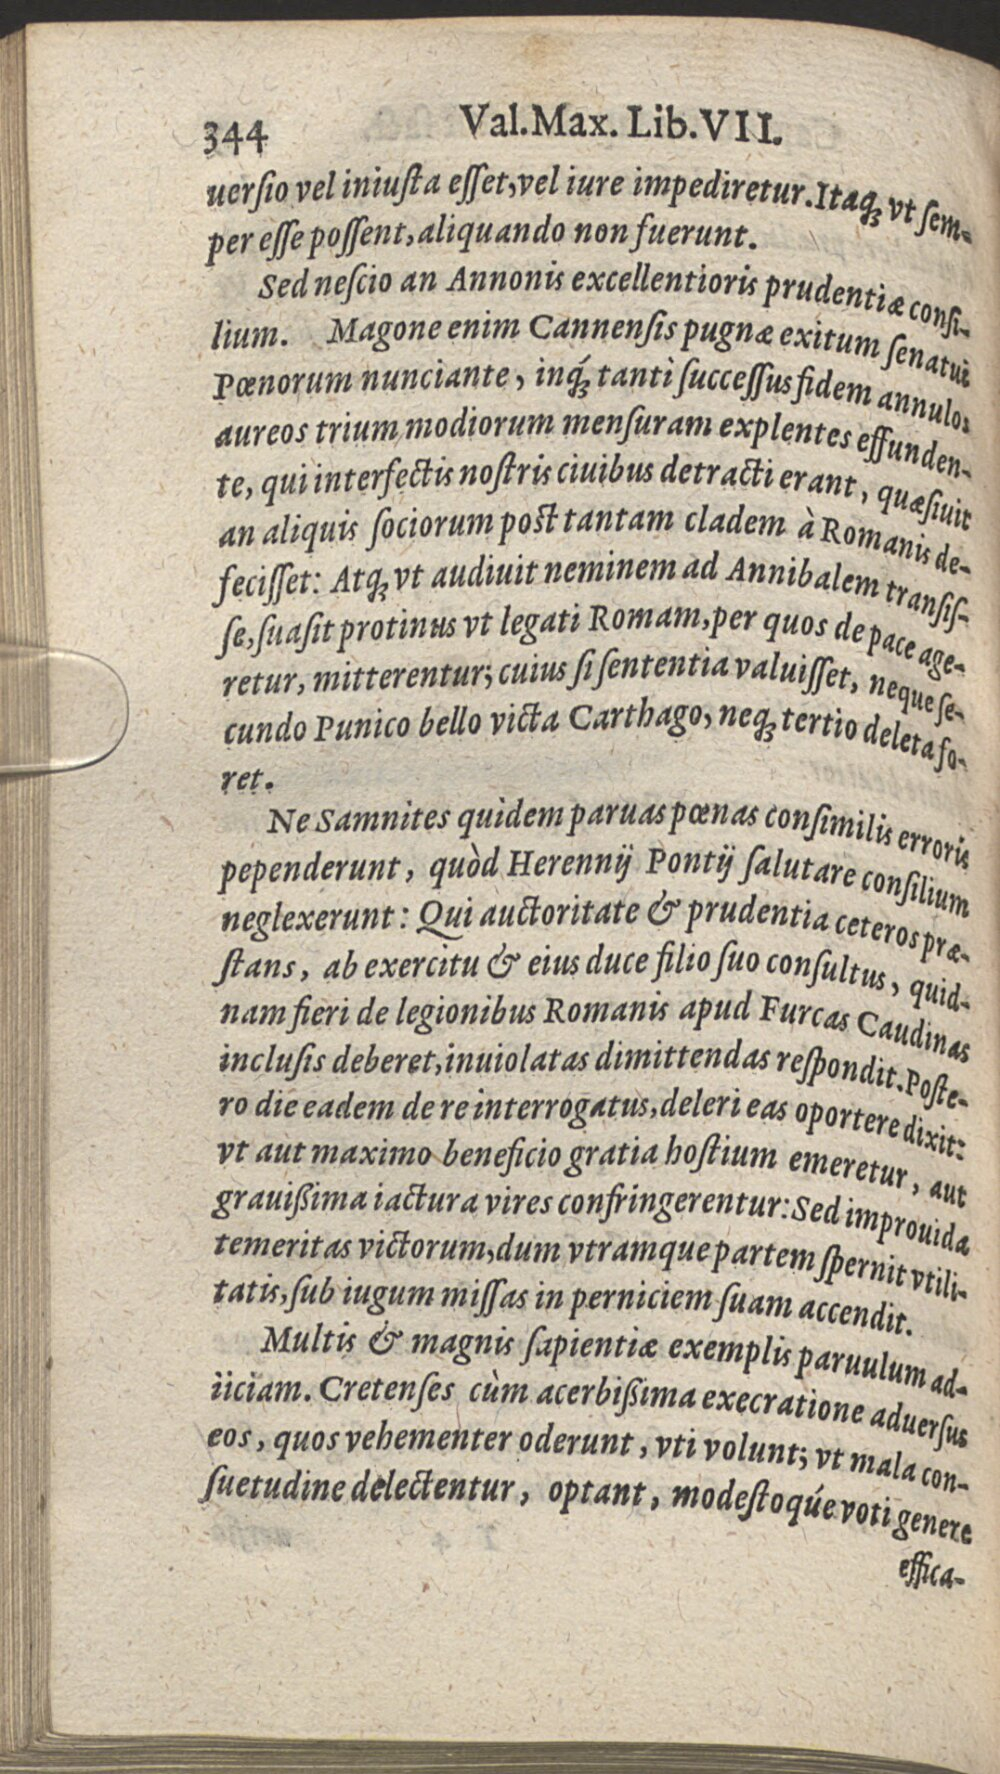 344 Val. Max. Lib. VII.
uerſio vel iniuſta eſſet, vel iure impediretur. Itaq́; vt ſem-
per eſſe poſſent, aliquando non fuerunt.
Sed neſcio an Annonis excellentioris prudentiæ conſi-
lium. Magone enim Cannenſis pugnæ exitum ſenatui
Pœnorum nunciante, inq́; tantì ſucceſſus fidem annulos
aureos trium modiorum menſuram explentes effunden-
te, qui interfectis noſtris ciuibus detracti erant, quæſiuit
an aliquis ſociorum poſt tantam cladem à Romanis de-
feciſſet: Atq; vt audiuit neminem ad Annibalem tranſiſ-
ſe, ſuaſit protinus vt legati Romam, per quos de pace age-
retur, mitterentur; cuius ſi ſententia valuiſſet, neque ſe-
cundo Punico bello victa Carthago, neq; tertio deleta fo-
ret.
Ne Samnites quidem paruas pœnas conſimilis erroris
pependerunt, quòd Herennij Pontij ſalutare conſilium
neglexerunt: Qui auctoritate & prudentia ceteros præ-
ſtans, ab exercitu & eius duce filio ſuo conſultus, quid-
nam fieri de legionibus Romanis apud Furcas Caudinas
incluſis deberet, inuiolatas dimittendas reſpondit. Poſte-
ro die eadem de re interrogatus, deleri eas oportere dixit:
vt aut maximo beneficio gratia hoſtium emeretur, aut
grauißima iactura vires confringerentur: Sed improuida
temeritas victorum, dum vtramque partem ſpernit vtili-
tatis, ſub iugum miſſas in perniciem ſuam accendit.
Multis & magnis ſapientiæ exemplis paruulum ad-
iiciam. Cretenſes cùm acerbißima execratione aduerſus
eos, quos vehementer oderunt, vti volunt; vt mala con-
ſuetudine delectentur, optant, modeſtoqúe voti genere
effica-